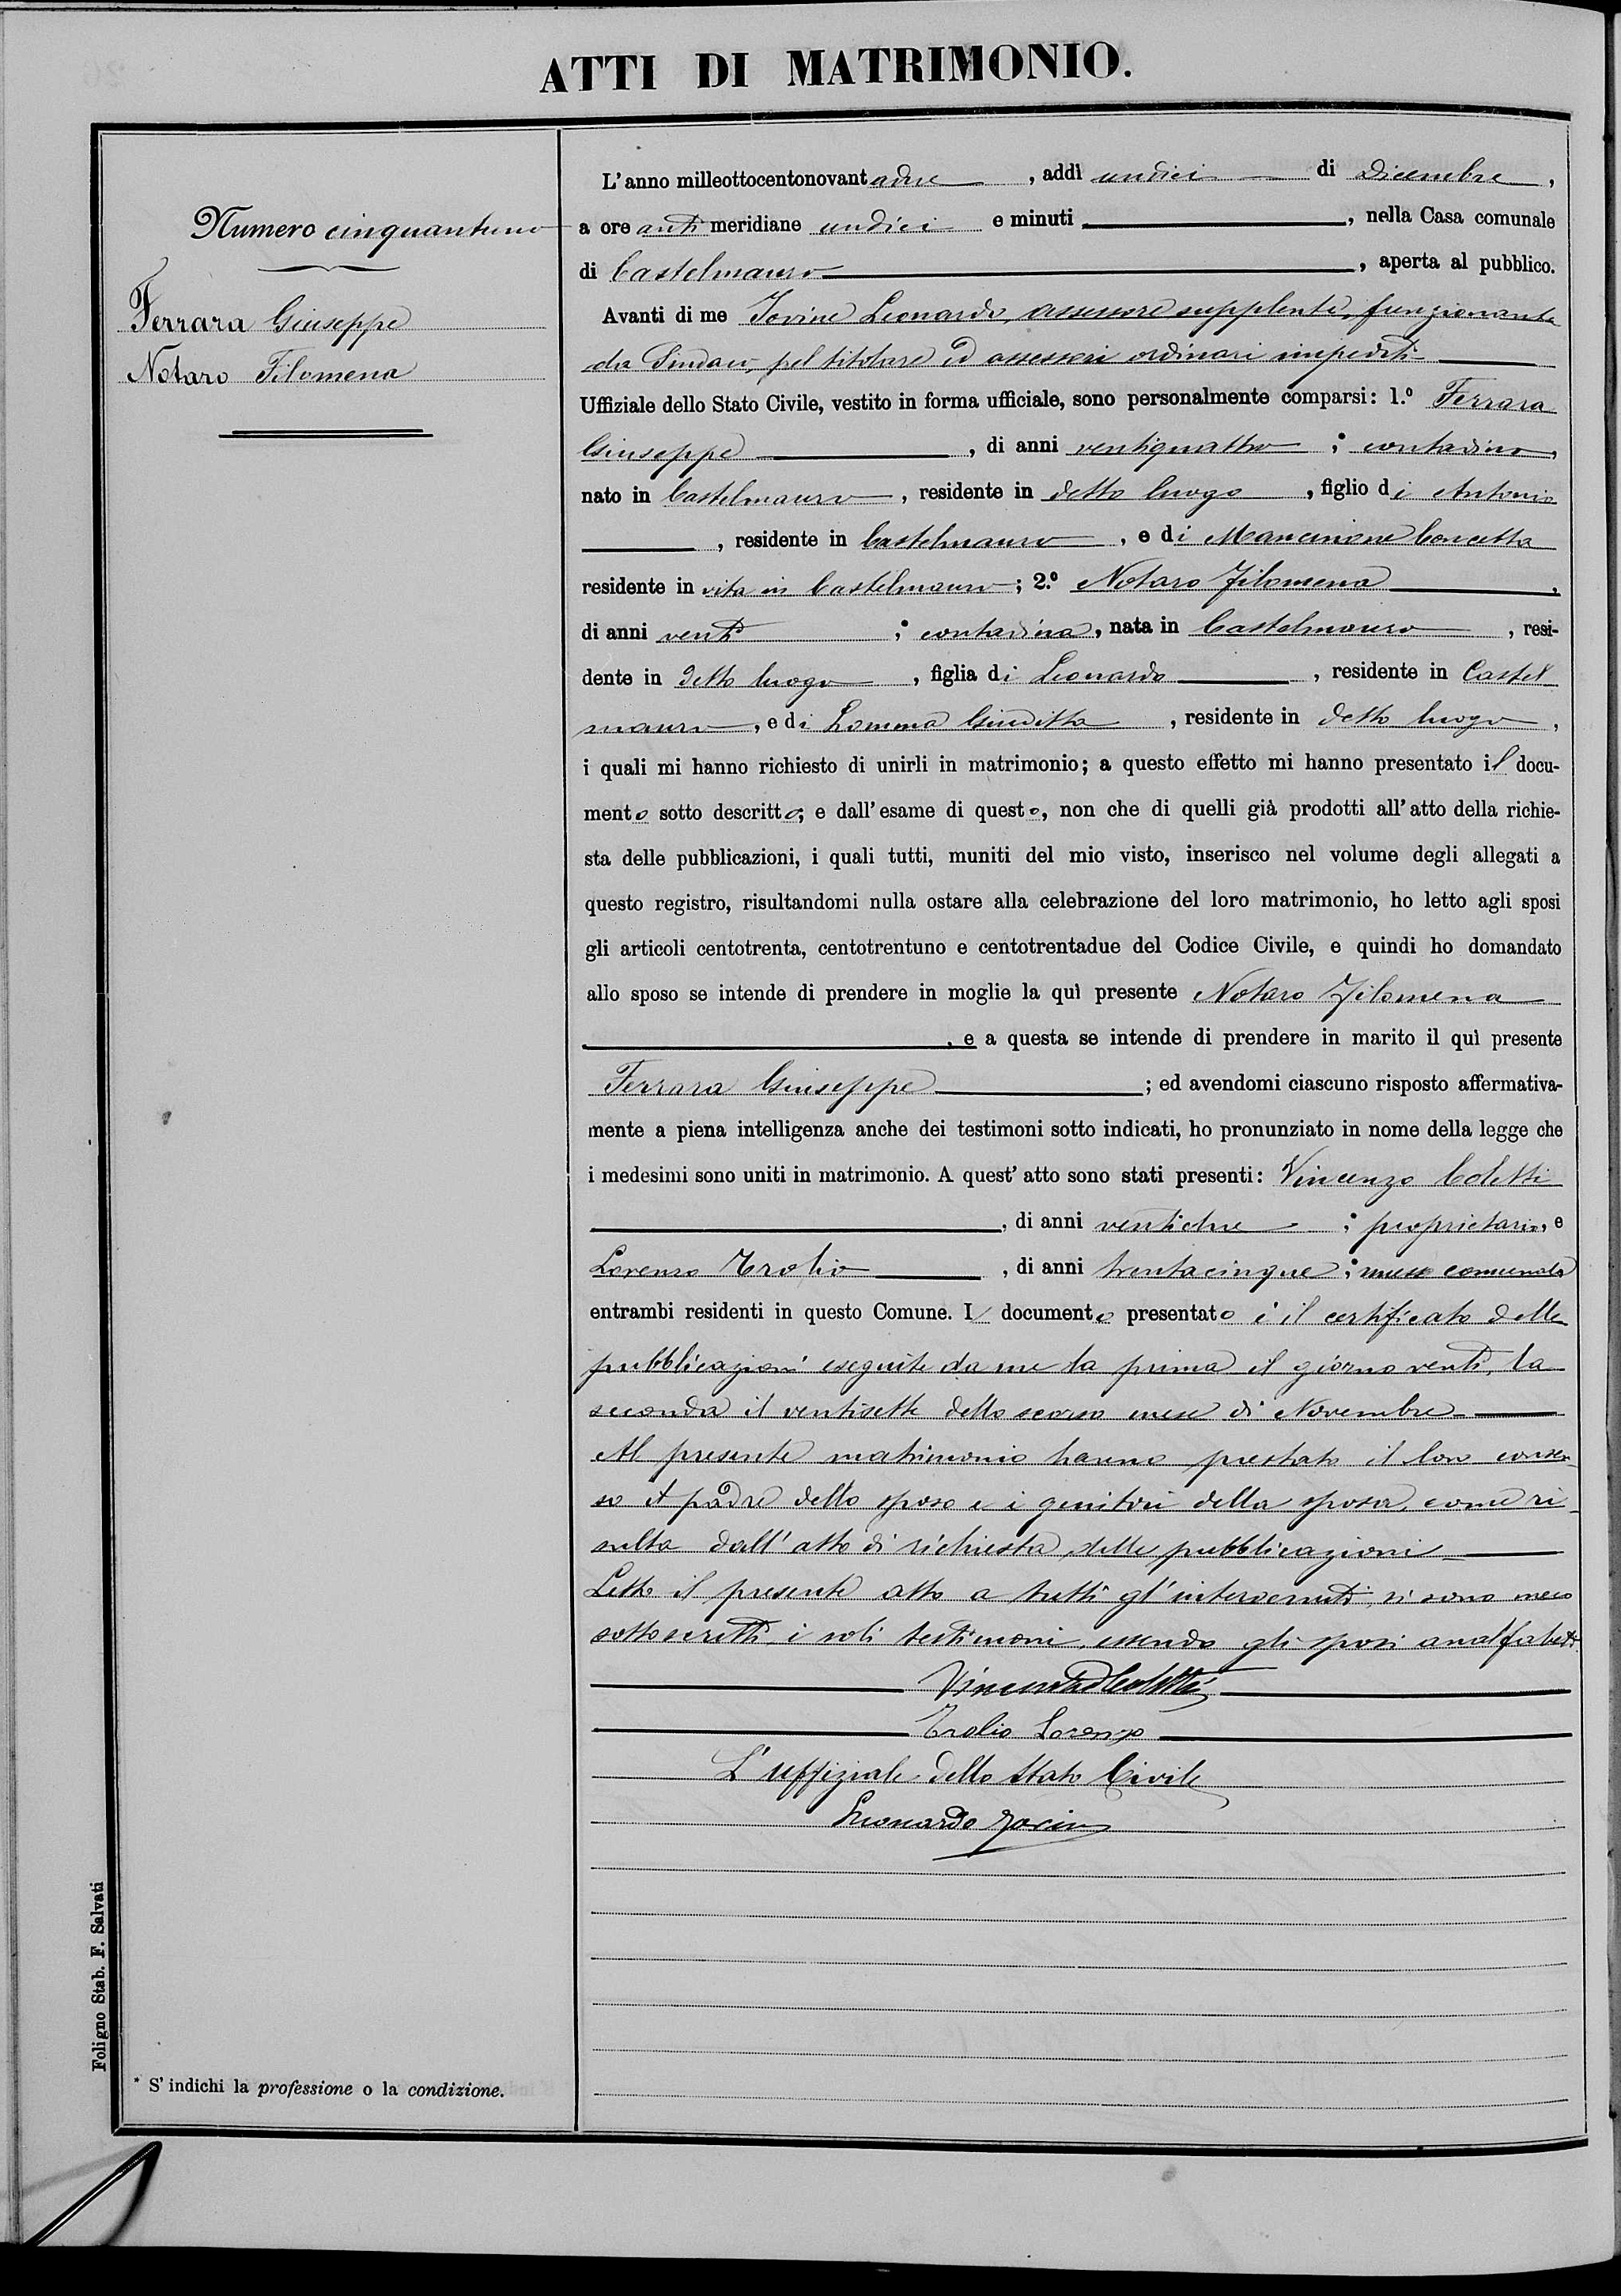 ATTI DI MATRIMONIO.
Numero cinquantuno
Ferrara Giuseppe
Notaro Filomena
L'anno milleottocentonovantadue, addì undici di Dicembre,
a ore antimeridiane undici e minuti , nella Casa comunale
di Castelmauro, aperta al pubblico.
Avanti di me Iovine Leonardo, assessore supplente, funzionante
da Sindaco, pel titolare ed assessori ordinari impediti
Uffiziale dello Stato Civile, vestito in forma ufficiale, sono personalmente comparsi: 1.º Ferrara
Giuseppe, di anni ventiquattro; contadino,
nato in Castelmauro, residente in detto luogo, figlio di Antonio
, residente in Castelmauro, e di Mancinone Concetta
residente in vita in Castelmauro; 2.º Notaro Filomena,
di anni venti; contadina, nata in Castelmauro, resi-
dente in detto luogo, figlia di Leonardo, residente in Castel
mauro, e di Lomma Giuditta, residente in detto luogo,
i quali mi hanno richiesto di unirli in matrimonio; a questo effetto mi hanno presentato il docu-
mento sotto descritto; e dall'esame di questo, non che di quelli già prodotti all'atto della richie-
sta delle pubblicazioni, i quali tutti, muniti del mio visto, inserisco nel volume degli allegati a
questo registro, risultandomi nulla ostare alla celebrazione del loro matrimonio, ho letto agli sposi
gli articoli centotrenta, centotrentuno e centotrentadue del Codice Civile, e quindi ho domandato
allo sposo se intende di prendere in moglie la quì presente Notaro Filomena
, e a questa se intende di prendere in marito il quì presente
Ferrara Giuseppe; ed avendomi ciascuno risposto affermativa-
mente a piena intelligenza anche dei testimoni sotto indicati, ho pronunziato in nome della legge che
i medesimi sono uniti in matrimonio. A quest'atto sono stati presenti: Vincenzo Coletti
, di anni ventidue; proprietario, e
Lorenzo Trolio, di anni trentacinque; messo comunale
entrambi residenti in questo Comune. Il documento presentato è il certificato delle
pubblicazioni eseguite da me la prima il giorno venti, la
seconda il ventisette dello scorso mese di Novembre
Al presente matrimonio hanno prestato il loro consen-
so il padre dello sposo e i genitori della sposa, come ri-
sulta dall'atto di richiesta delle pubblicazioni
Letto il presente atto a tutti gl'intervenuti, si sono meco
sottoscritti i soli testimoni, essendo gli sposi analfabeti.
Vincenzo Coletti
Trolio Lorenzo
L'uffiziale dello Stato Civile
Leonardo Iovine
Foligno Stab. F. Salvati
* S'indichi la professione o la condizione.